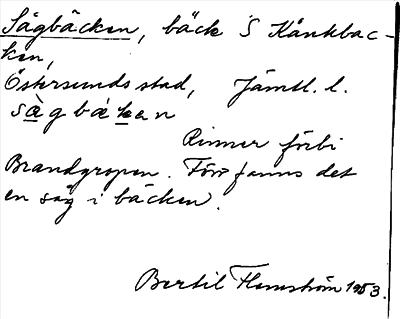 Sågbäcken, bäck S Kånkbac-
ken,
Östersunds stad, Jämtl. l.
sàgbáken
Rinner förbi
Brandgropen. Förr fanns det
en såg i bäcken.
Bertil Flemström 1953.